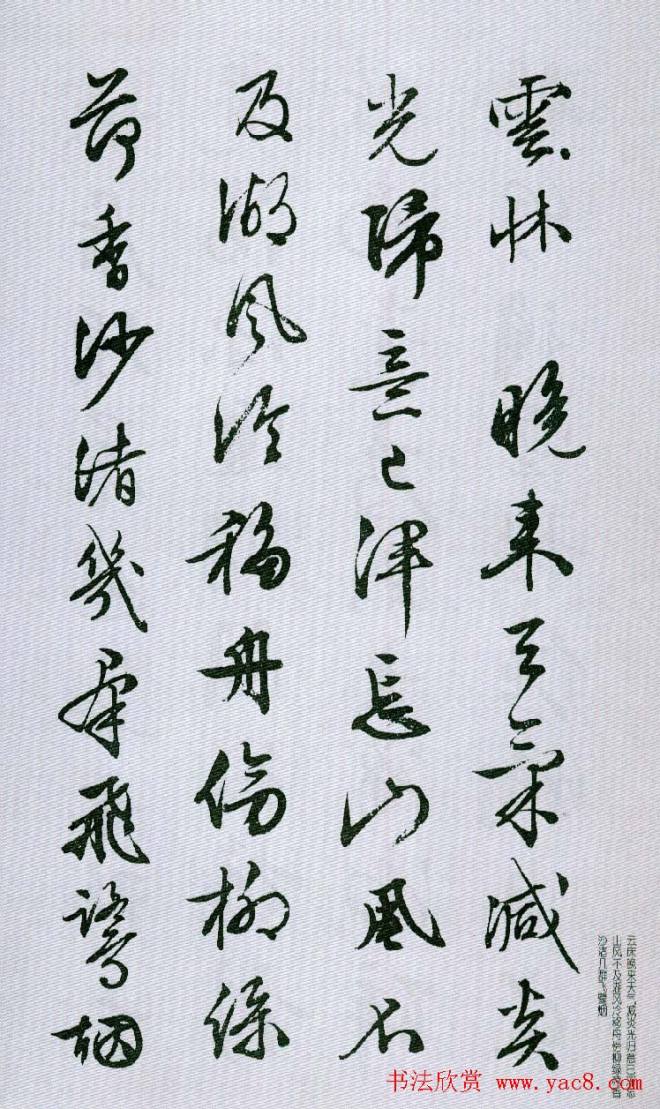 雲牀 晚来天氣減炎
光歸意已津忘山風不
及湖風冷移舟傍柳綠
荷香沙渚幾羣飛鷺烟
云床晚来天气减炎光归意已津忘
山风不及湖风冷移舟傍柳绿荷香
沙渚几群飞鹭烟
书法欣赏 www.yac8.com